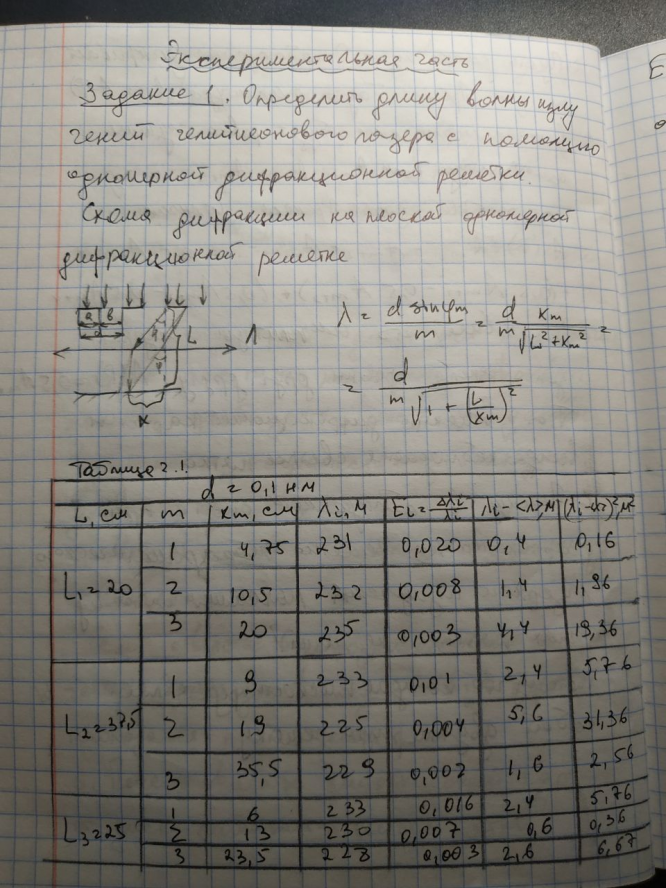 Экспериментальная часть
Задание 1. Определить длину волны излу
чений гелитнеонового лазера с помощью
одномерной дифракционной решетки.
Схема дифракции на плоской одномерной
дифракционной решетке
a b
d
φ
φ
L
Л
x
λ = d sinφm / m = d/m xm/√(L²+xm²) =
= d / m√(1 + (L/xm)²)
Таблица 2.1.
d = 0,1 нм
L, см m xm, см λi, м Ei = Δλi/λi λi - <λ>, м (λi-<λ>)², м²
L1 = 20 1 4,75 231 0,020 0,4 0,16
2 10,5 232 0,008 1,4 1,96
3 20 235 0,003 4,4 19,36
L2 = 37,5 1 9 233 0,01 2,4 5,76
2 19 225 0,004 5,6 31,36
3 35,5 229 0,002 1,6 2,56
L3 = 25 1 6 233 0,016 2,4 5,76
2 13 230 0,007 0,6 0,36
3 23,5 228 0,003 2,6 6,67